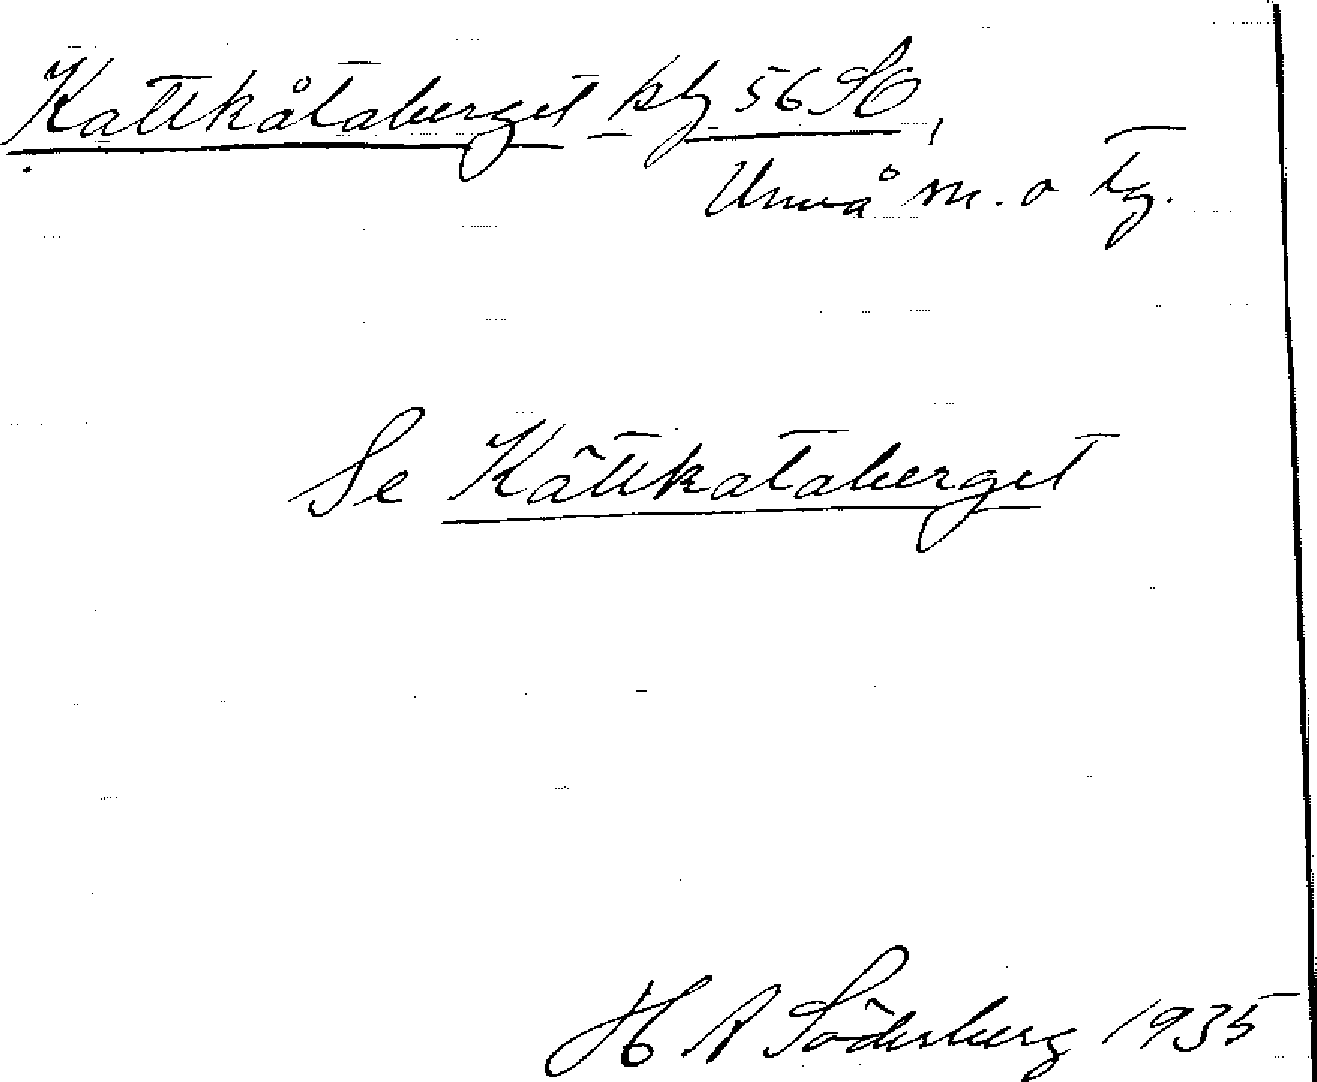 Kattkåtaberget kbg 56 SO,
Umeå m. o tg.
Se Kättkataberget
H A Söderberg 1935